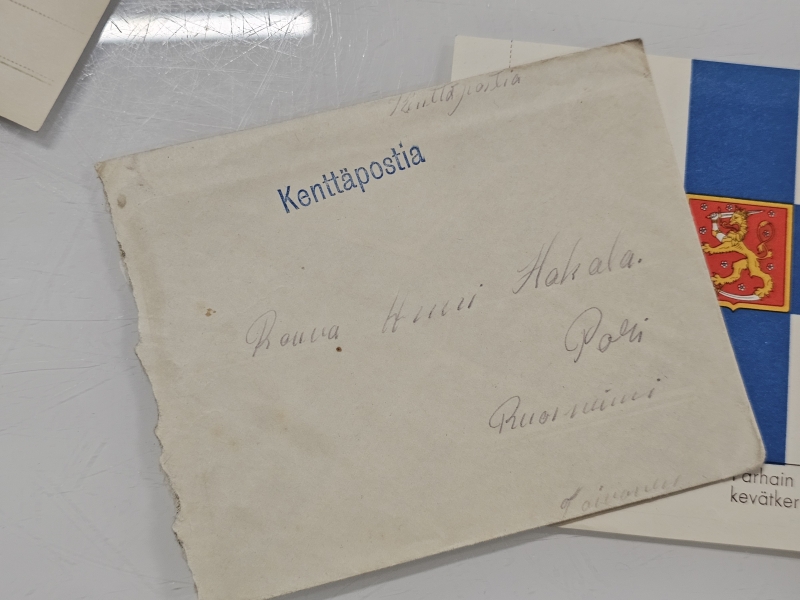 Kenttäpostia
Kenttäpostia
Rouva Hakala.
Pori
Ruosniemi
Toivonen
Parhain
kevätker